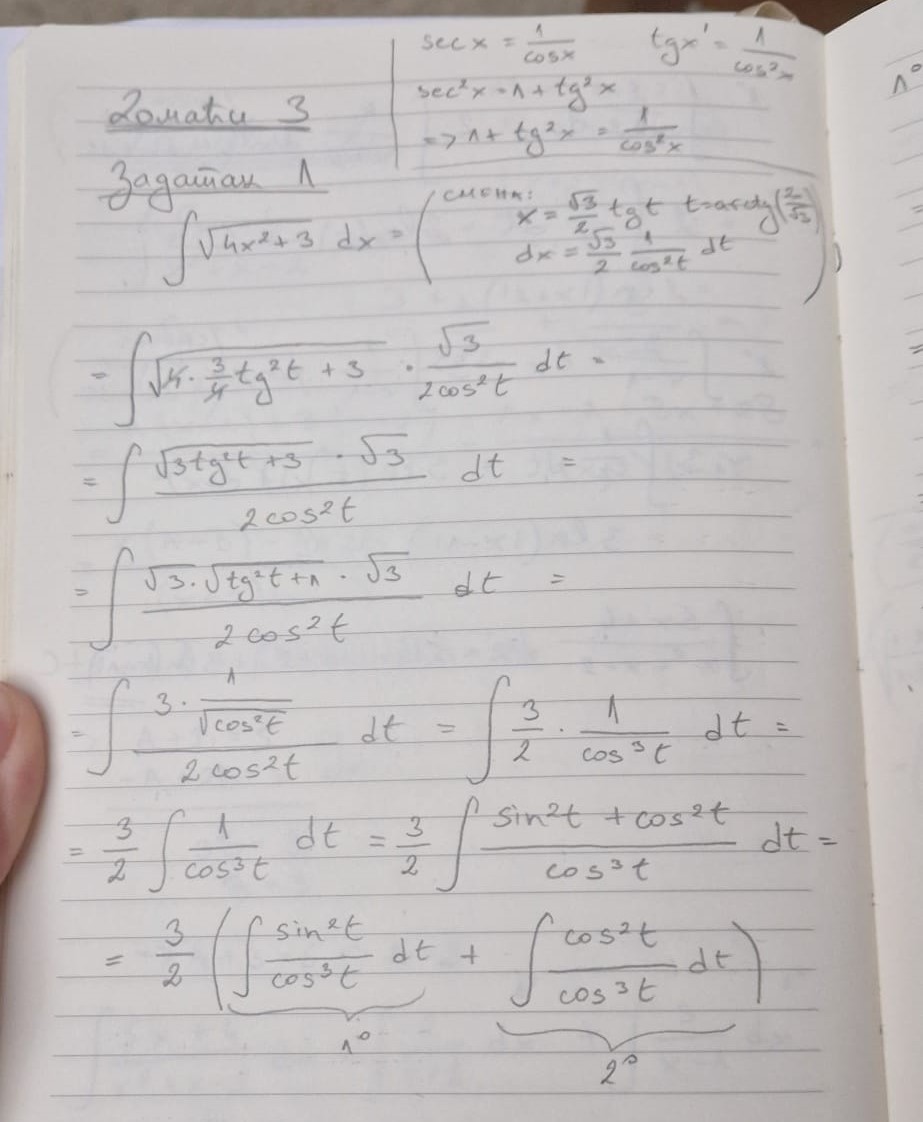 sec x = 1/cosx   tgx' = 1/cos²x
sec²x = 1 + tg²x
=> 1 + tg²x = 1/cos²x
Домаћи 3
Задатак 1
∫√(4x²+3) dx = ( смена: x = √3/2 tg t
dx = √3/2 1/cos²t dt )
= ∫√(4 · 3/4 tg²t + 3) · √3/(2cos²t) dt =
= ∫ (√(3tg²t + 3) · √3)/(2cos²t) dt =
= ∫ (√3 · √(tg²t + 1) · √3)/(2cos²t) dt =
= ∫ (3 · 1/√(cos²t))/(2cos²t) dt = ∫ 3/2 · 1/cos³t dt =
= 3/2 ∫ 1/cos³t dt = 3/2 ∫ (sin²t + cos²t)/cos³t dt =
= 3/2 ( ∫ sin²t/cos³t dt + ∫ cos²t/cos³t dt )
1°
2°
1°
=
=